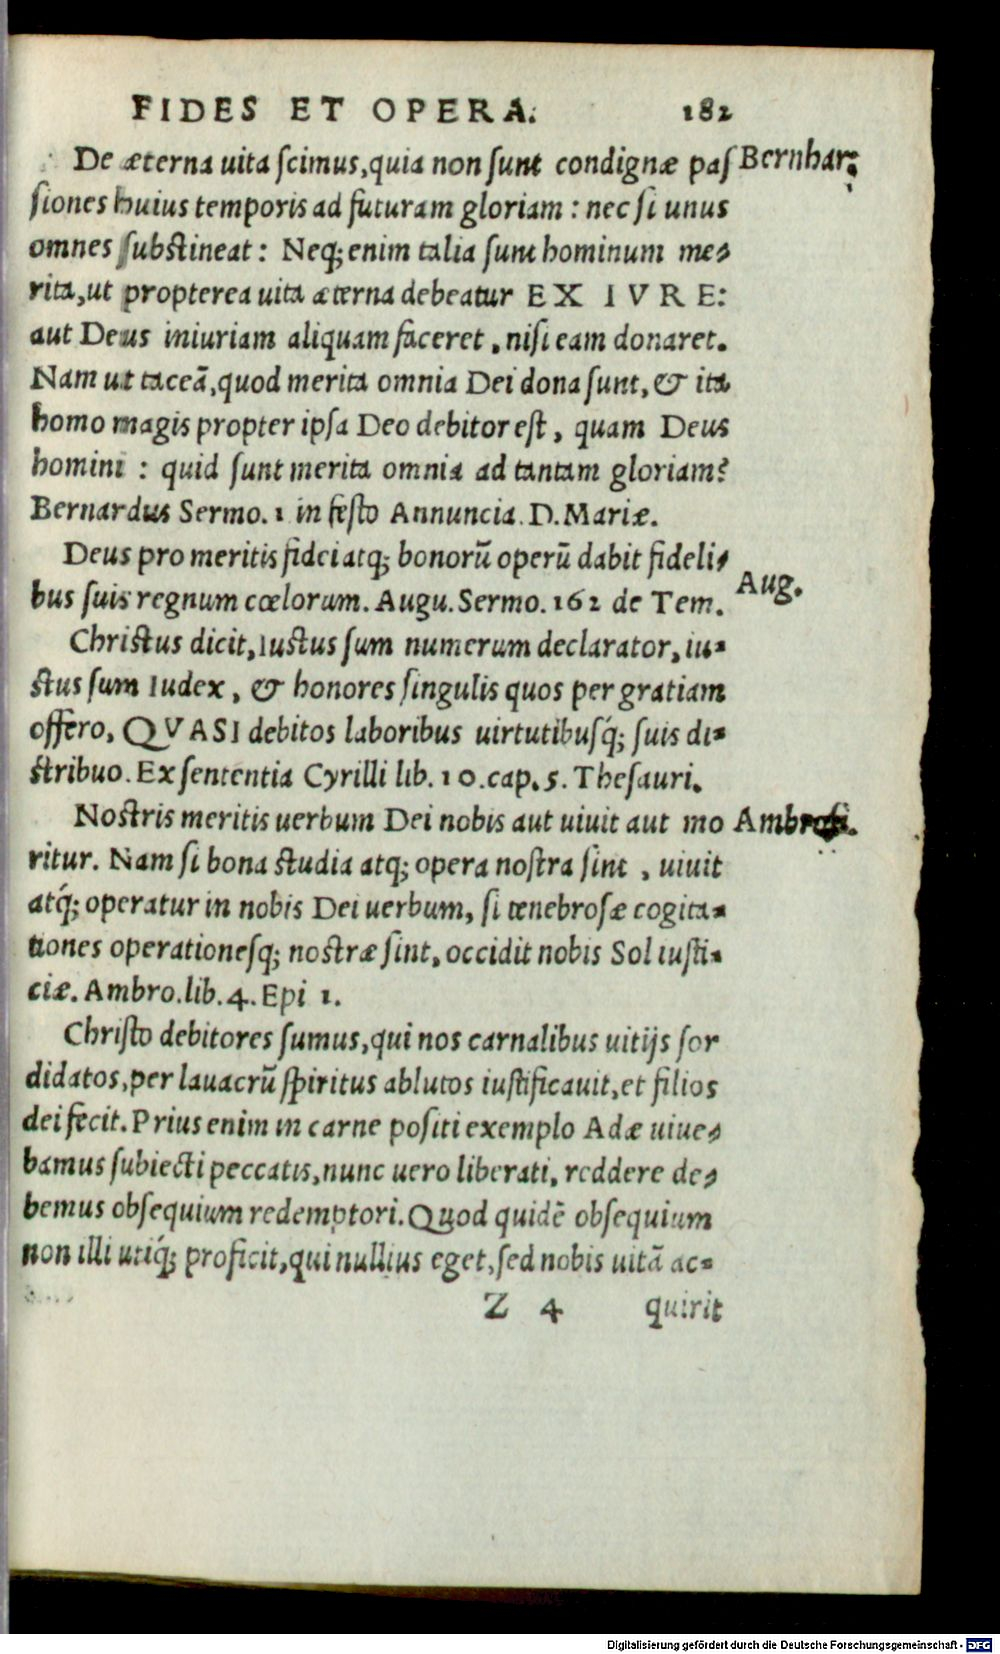 FIDES ET OPERA. 182
De æterna uita scimus, quia non sunt condignæ pas Bernhar.
siones huius temporis ad futuram gloriam: nec si unus
omnes substineat: Neq; enim talia sunt hominum me-
rita, ut propterea uita æterna debeatur EX IVRE:
aut Deus iniuriam aliquam faceret, nisi eam donaret.
Nam ut taceā, quod merita omnia Dei dona sunt, & ita
homo magis propter ipsa Deo debitor est, quam Deus
homini: quid sunt merita omnia ad tantam gloriam?
Bernardus Sermo. 1 in festo Annuncia. D. Mariæ.
Deus pro meritis fidei atq; bonorū operū dabit fideli-
bus suis regnum cœlorum. Augu. Sermo. 162 de Tem. Aug.
Christus dicit, Iustus sum numerum declarator, iu-
stus sum Iudex, & honores singulis quos per gratiam
offero, QVASI debitos laboribus uirtutibusq́; suis di-
stribuo. Ex sententia Cyrilli lib. 10. cap. 5. Thesauri.
Nostris meritis uerbum Dei nobis aut uiuit aut mo Ambrosi.
ritur. Nam si bona studia atq; opera nostra sint, uiuit
atq́; operatur in nobis Dei uerbum, si tenebrosæ cogita-
tiones operationesq; nostræ sint, occidit nobis Sol iusti-
ciæ. Ambro. lib. 4. Epi 1.
Christo debitores sumus, qui nos carnalibus uitijs sor
didatos, per lauacrū spiritus ablutos iustificauit, et filios
dei fecit. Prius enim in carne positi exemplo Adæ uiue-
bamus subiecti peccatis, nunc uero liberati, reddere de-
bemus obsequium redemptori. Quod quidē obsequium
non illi utiq́; proficit, qui nullius eget, sed nobis uitā ac-
Z 4 quirit
Digitalisierung gefördert durch die Deutsche Forschungsgemeinschaft - DFG